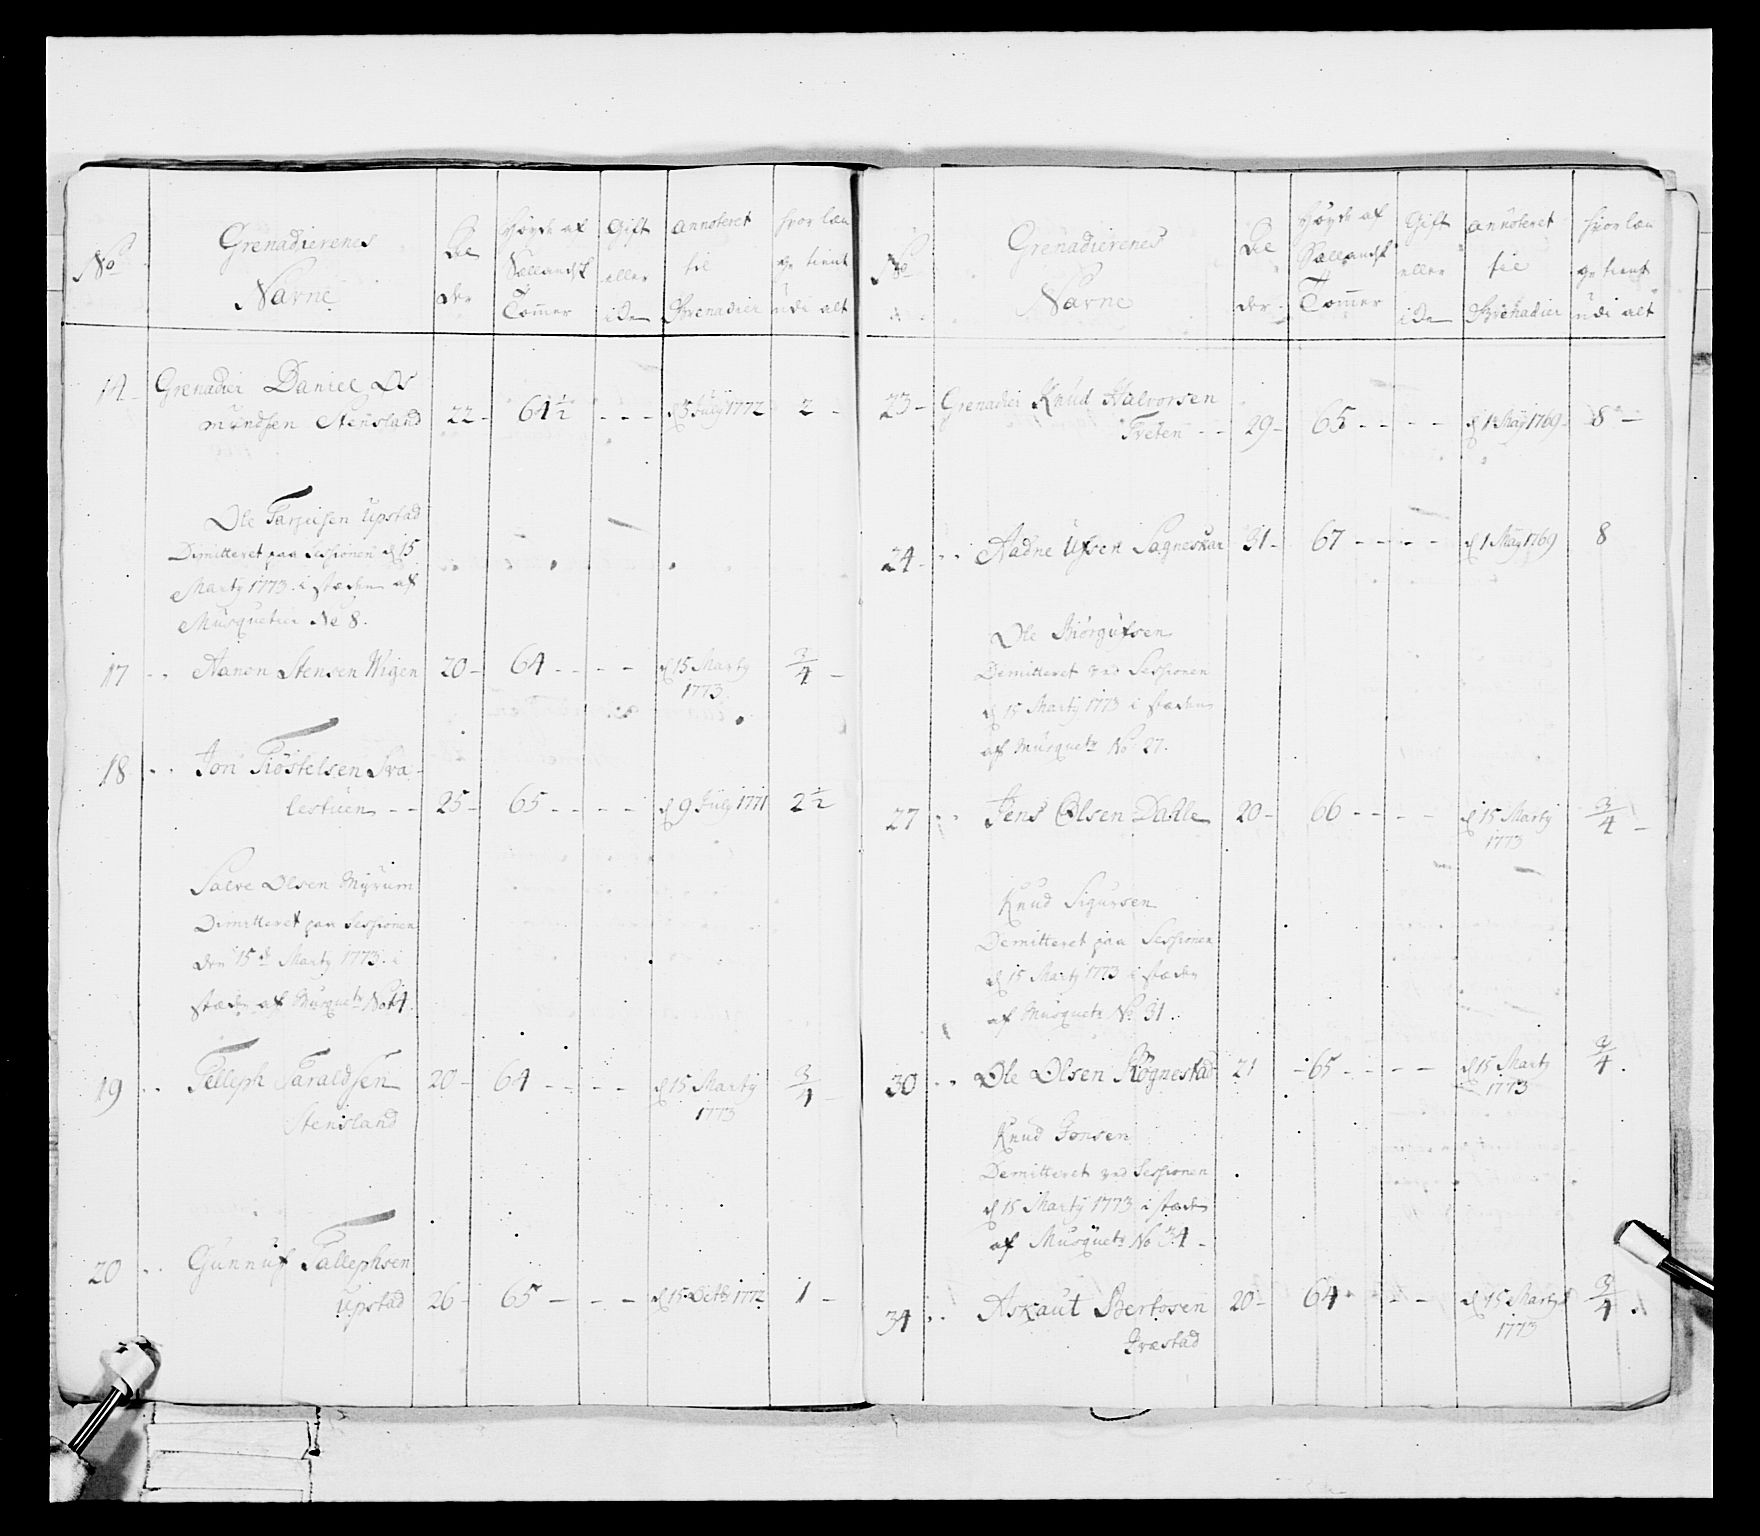 No
Grenadierenes
Navne
Al
der
Høyde af
Sællandsk
Tommer
Gift
eller
iche
annoteret
til
Grenadier
hvor læn
ge tient
udi alt
14 - Grenadier Daniel Os
mundsen Stensland 22 - 64 1/2 - - - d 3 July 1772 2 -
Ole Tarjeisen Upstad
Dimitteret paa Sessionen d 15
Marty 1773 i stæden af
Musquetier No 8.
17 - - Aanon Stensen Wigen 20 - 64 - - - - d 15 Marty 3/4 -
1773
18 - - Jon Tiøstelsen Sva-
lestuen - - 25 - 65 - - - - d 9 July 1771 2 1/2
Salve Olsen Myrum
Dimitteret paa Sessionen
den 15de Marty 1773. i
stæden af Musquetr No 14.
19 - - Telleph Taraldsen 20 - 64 - - - - d 15 Marty 3/4 -
Stensland 1773
20 - - Gunnuf Tallephsen
Upstad 26 - 65 - - - d 15 Octbr 1772 1 -
No
Grenadierenes
Navne
Al
der
Høyde af
Sællandsk
Tommer
Gift
eller
iche
annoteret
til
Grenadier
hvor læn
ge tient
udi alt
23 - Grenadier Knud Halvorsen
Treten - - 29 - 65 - - - - d 1 May 1769 - 8 -
24 - - Aadne Ufsen Sagneskar 31 - 67 - - - - d 1 May 1769 8
Ole Biørgufsen
Demitteret ved Sessionen
d 15 Marty 1773 i stæden
af Musquetr No 27.
27 - - Jens Olsen Dahle 20 - 66 - - - - d 15 Marty 3/4 -
1773
Knud Sigursen
Demitteret paa Sessionen
d 15 Marty 1773 i stæden
af Musquetr No 31.
30 - - Ole Olsen Røgnestad 21 - 65 - - - - d 15 Marty 3/4.
1773
Knud Jonsen
Demitteret ved Sessionen
d 15 Marty 1773 i stæden
af Musquetr No 34 -
34 - - Askaut Bertosen 20 - 64 - - - d 15 Marty 3/4.
Ivestad 1773